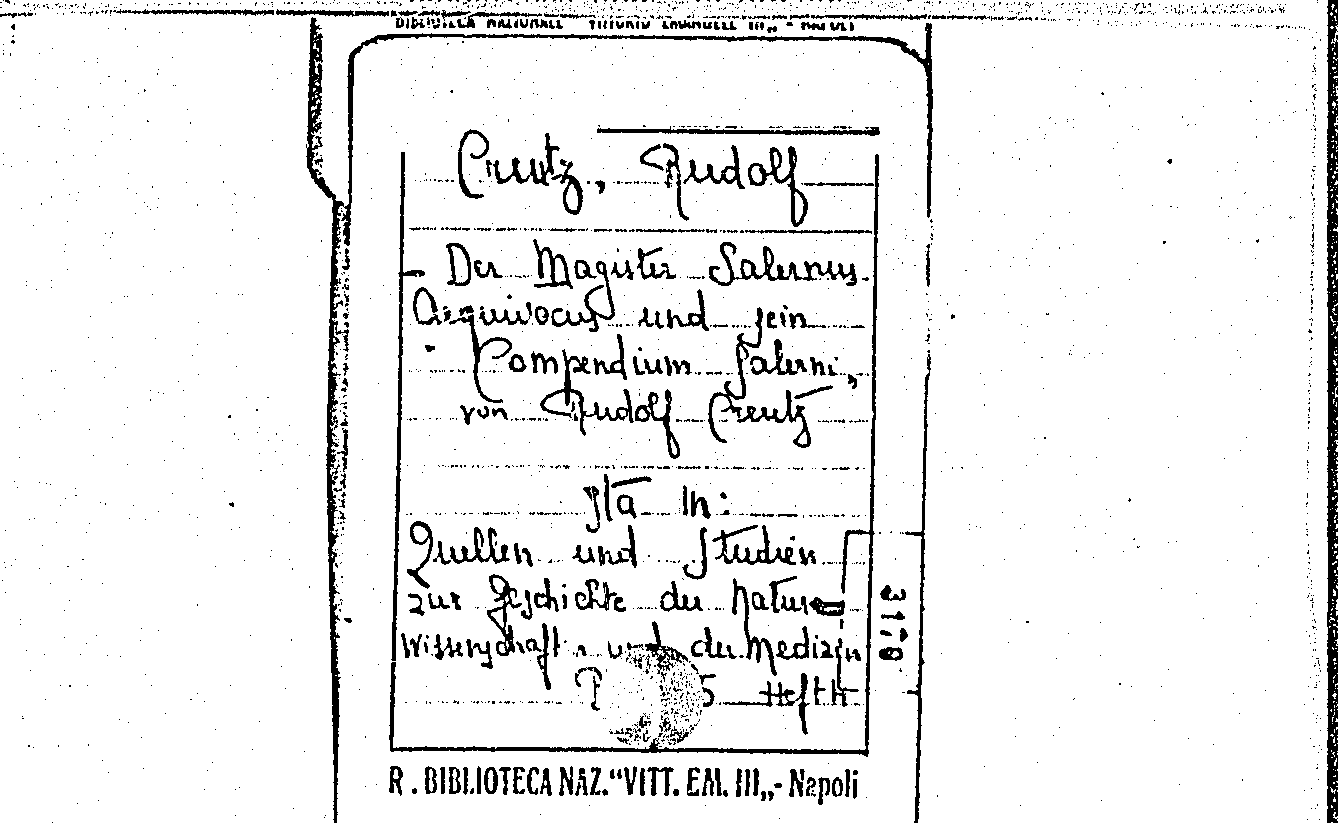 BIBLIOTECA NAZIONALE VITTORIO EMANUELE III„ - NAPOLI
Creutz, Rudolf
- Der Magister Salernus
Aequivocus und sein
Compendium Salerni,
von Rudolf Creutz
Sta in:
Quellen und Studien
zur Geschichte der Natur
Wissenschaft. und der Medizin
5 Heft 4
3170
R. BIBLIOTECA NAZ. “VITT. EM. III„- Napoli